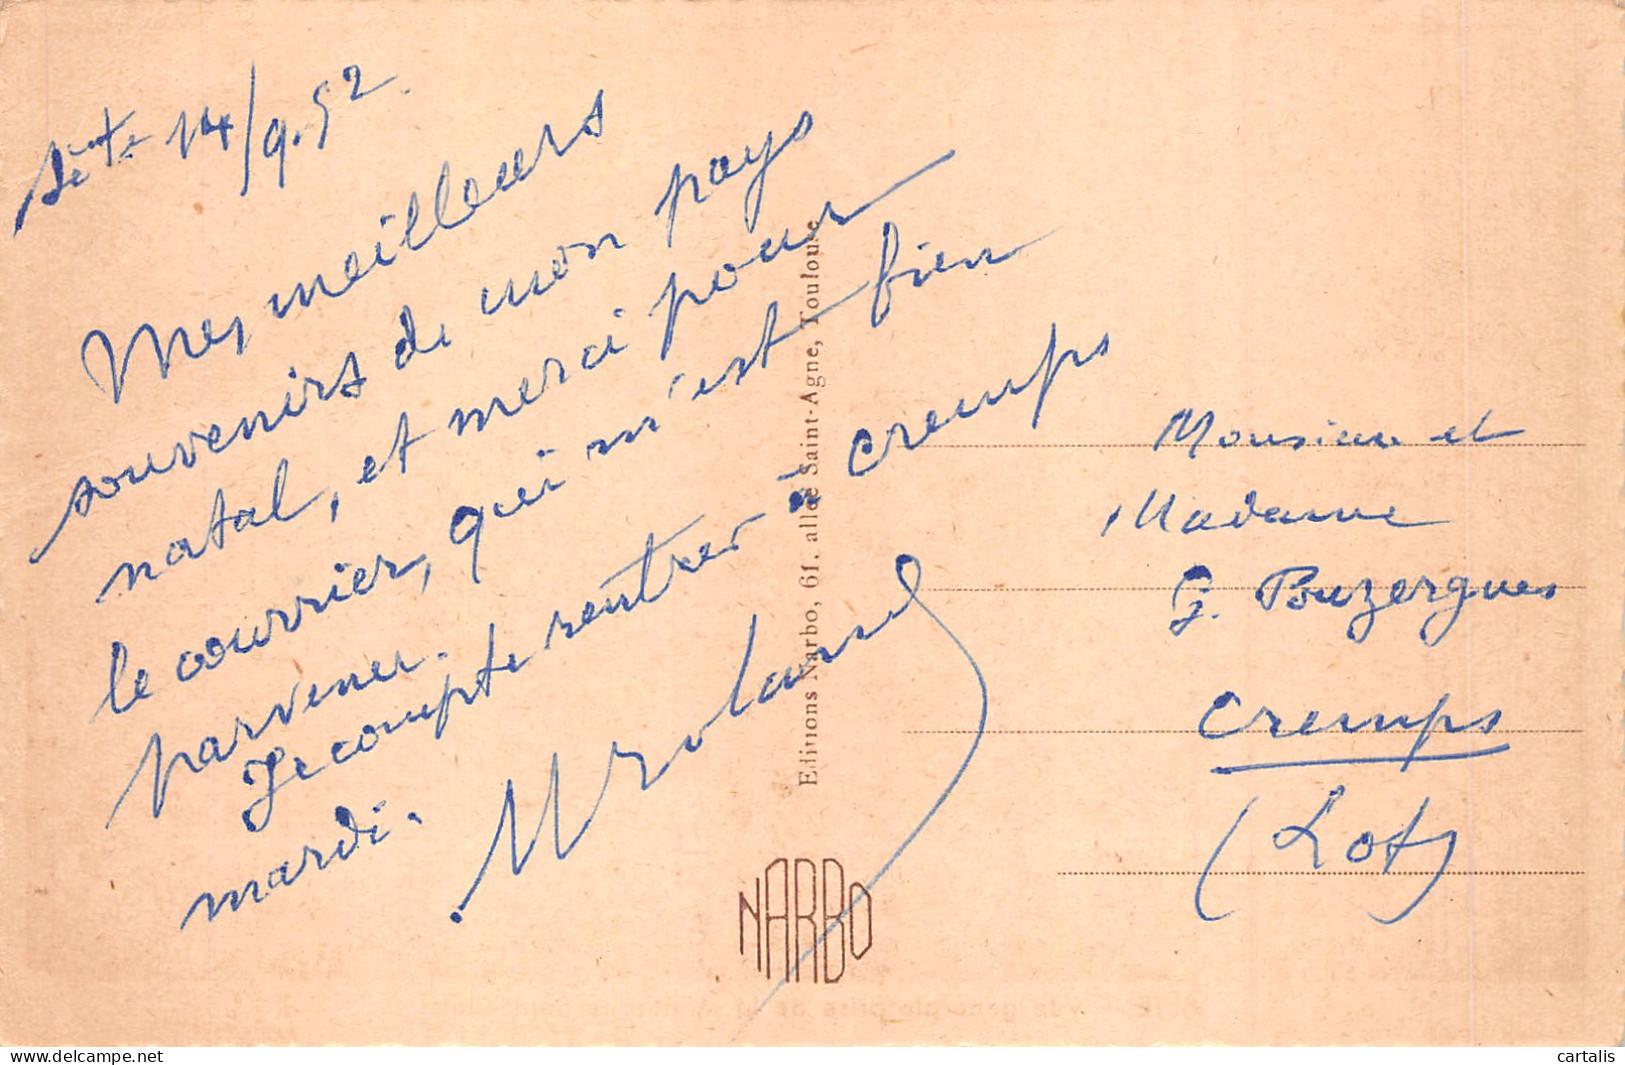 14/9.52
Mes meilleurs
souvenirs de mon pays
natal, et merci pour
le courrier, qui m'est bien
parvenu.
Je compte rentrer à Cremps
mardi.
Roland
Editions Narbo, 61, allée Saint-Agne, Toulouse
NARBO
Monsieur et
Madame
G. Pouzergues
Cremps
(Lot)
delcampe.net
cartalis